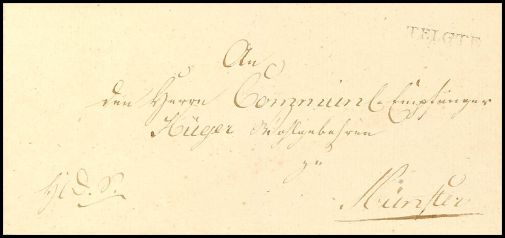 TELGTE
An
den Herrn Commun. Empfänger
Hüger Wohlgebohren
zu
H. D. S.
Münster